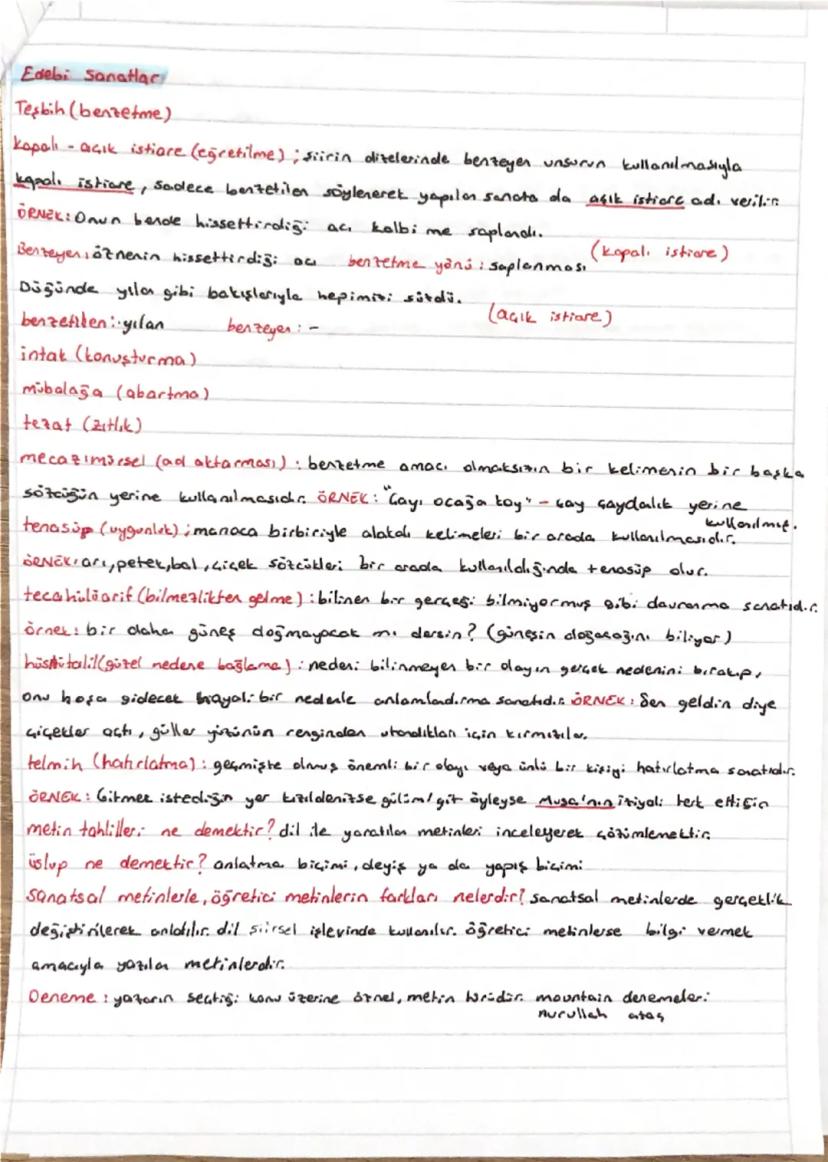 Edebi Sanatlar
Teşbih (benzetme)
Kapalı - açık istiare (eğretilme) ; şiirin dizelerinde benzeyen unsurun kullanılmasıyla
kapalı istiare, sadece benzetilen söylenerek yapılan sanata da açık istiare adı verilir.
ÖRNEK: Onun bende hissettirdiği acı kalbime saplandı.
(kapalı istiare)
Benzeyen: öznenin hissettirdiği acı benzetme yönü: saplanması
Düğünde yılan gibi bakışlarıyla hepimizi süzdü.
(açık istiare)
benzetilen: yılan benzeyen: -
intak (konuşturma)
mübalağa (abartma)
tezat (zıtlık)
mecazımürsel (ad aktarması) : benzetme amacı olmaksızın bir kelimenin bir başka
sözcüğün yerine kullanılmasıdır. ÖRNEK: "Çayı ocağa koy" - çay çaydanlık yerine
kullanılmış.
tenasüp (uygunluk) ; manaca birbiriyle alakalı kelimeleri bir arada kullanılmasıdır.
ÖRNEK: arı, petek, bal, çiçek sözcükleri bir arada kullanıldığında tenasüp olur.
tecahülüarif (bilmezlikten gelme) : bilinen bir gerçeği bilmiyormuş gibi davranma sanatıdır.
örnek: bir daha güneş doğmayacak mı dersin? (güneşin doğacağını biliyor)
hüsnütalil (güzel nedene bağlama) : nedeni bilinmeyen bir olayın gerçek nedenini bırakıp,
onu hoşa gidecek hayali bir nedenle anlamlandırma sanatıdır. ÖRNEK: Sen geldin diye
çiçekler açtı, güller yüzünün renginden utandıkları için kırmızılar.
telmih (hatırlatma) : geçmişte olmuş önemli bir olayı veya ünlü bir kişiyi hatırlatma sanatıdır.
ÖRNEK: Gitmek istediğin yer kızıldenizse gülüm/git öyleyse Musa'nın terk ettiğin
metin tahlilleri ne demektir? dil ile yaratılan metinleri inceleyerek çözümlemektir.
üslup ne demektir? anlatma biçimi, deyiş ya da yapış biçimi
Sanatsal metinlerle, öğretici metinlerin farkları nelerdir? sanatsal metinlerde gerçeklik
değiştirilerek anlatılır. dil şiirsel işlevinde kullanılır. öğretici metinlerse bilgi vermek
amacıyla yazılan metinlerdir.
Deneme : yazarın seçtiği konu üzerine öznel, metin türüdür. mountain denemeleri
nurullah ataç